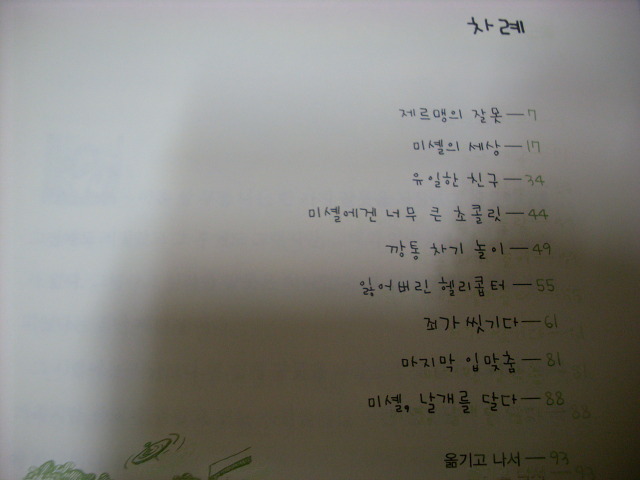 차례
제르맹의 잘못 — 7
미셸의 세상 — 17
유일한 친구 — 34
미셸에겐 너무 큰 초콜릿 — 44
깡통 차기 놀이 — 49
잃어버린 헬리콥터 — 55
죄가 씻기다 — 61
마지막 입맞춤 — 81
미셸, 날개를 달다 — 88
옮기고 나서 — 93